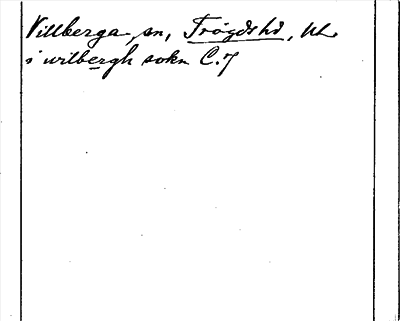 Villberga, sn, Trögds hd, Upl.
i wilbergh sokn C. 7